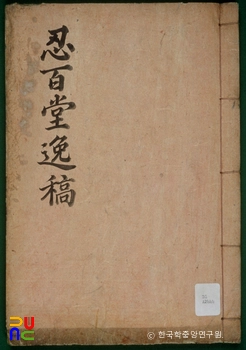 忍百堂逸稿
© 한국학중앙연구원